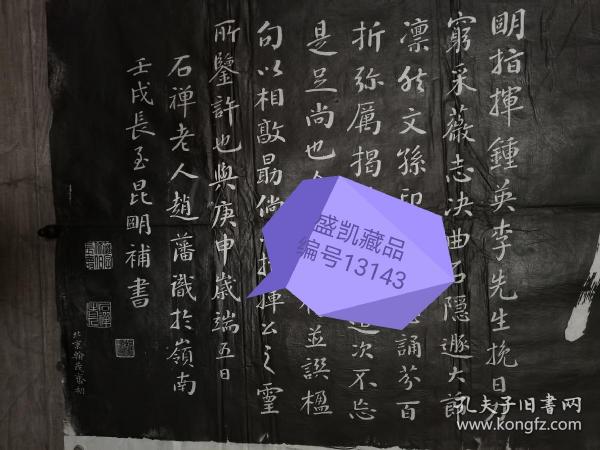 明指揮鍾英李先生挽日
窮采薇志決曲石隱遯大節
凛然文孫印 誦芬百
折弥厲揭 造次不忘
是足尚也 並譔楹
句以相敦勗倘 指揮公之靈
所鑒許也與庚申歲端五日
石禅老人趙藩識於嶺南
壬戌長至昆明補書
北京翰茂齋刻
盛凯藏品
编号13143
孔夫子旧书网
www.kongfz.com